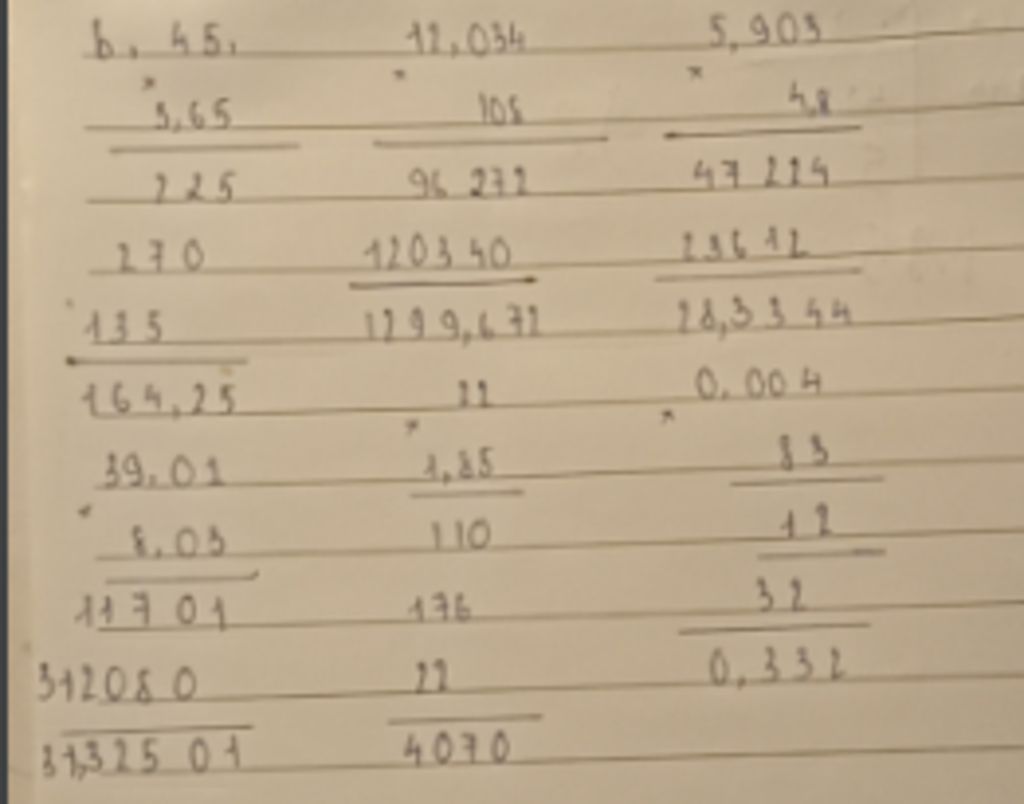 b. 45, 12,034 5,903
× × ×
3,65 108 4,8
225 96 272 47 224
270 120340 23612
135 1299,672 28,3344
164,25 22 0,004
× ×
39,01 1,85 83
×
8,03 110 12
11701 176 32
312080 22 0,332
31,32501 4070